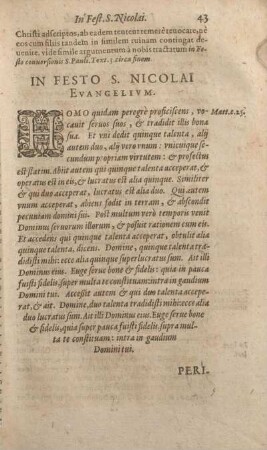 In Fest. S. Nicolai. 43
Christi adscriptos, ab eadem tentent remere reuocare, ne
eos cum filiis tandem in similem ruinam contingat de-
uenire. vide simile argumentum à nobis tractatum in Fe-
sto conuersionis S. Pauli. Text. 5. circa finem.
IN FESTO S. NICOLAI
EVANGELIVM.
HOMO quidam peregrè proficiscens, vo- Matt. c. 25.
cauit seruos suos, & tradidit illis bona
sua. Et vni dedit quinque talenta, alij
autem duo, alij vero vnum: vnicuique se-
cundum propriam virtutem: & profectus
est statim. Abiit autem qui quinque talenta acceperat, &
operatus est in eis, & lucratus est alia quinque. Similiter
& qui duo acceperat, lucratus est alia duo. Qui autem
vnum acceperat, abiens fodit in terram, & abscondit
pecuniam domini sui. Post multum verò temporis venit
Dominus seruorum illorum, & posuit rationem cum eis.
Et accedens qui quinque talenta acceperat, obtulit alia
quinque talenta, dicens: Domine, quinque talenta tra-
didisti mihi: ecce alia quinque superlucratus sum. Ait illi
Dominus eius. Euge serue bone & fidelis: quia in pauca
fuisti fidelis, supra multa te constituam: intra in gaudium
Domini tui. Accessit autem & qui duo talenta accepe-
rat, & ait. Domine, duo talenta tradidisti mihi: ecce alia
duo lucratus sum. Ait illi Dominus eius. Euge serue bone
& fidelis, quia super pauca fuisti fidelis, supra mul-
ta te constituam: intra in gaudium
Domini tui.
PERI-